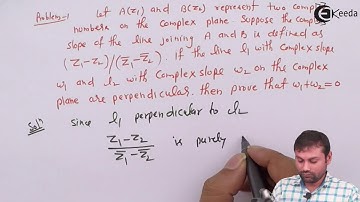 Keeda
Problem-1 Let A(z₁) and B(z₂) represent two complex
numbers on the complex plane. Suppose the complex
slope of the line joining A and B is defined as
(z₁-z₂)/(z̄₁-z̄₂). If the line l₁ with complex slope
ω₁ and l₂ with complex slope ω₂ on the complex
plane are perpendicular. then prove that ω₁+ω₂=0
Soln: Since l₁ perpendicular to l₂
z₁-z₂
z̄₁-z̄₂ is purely